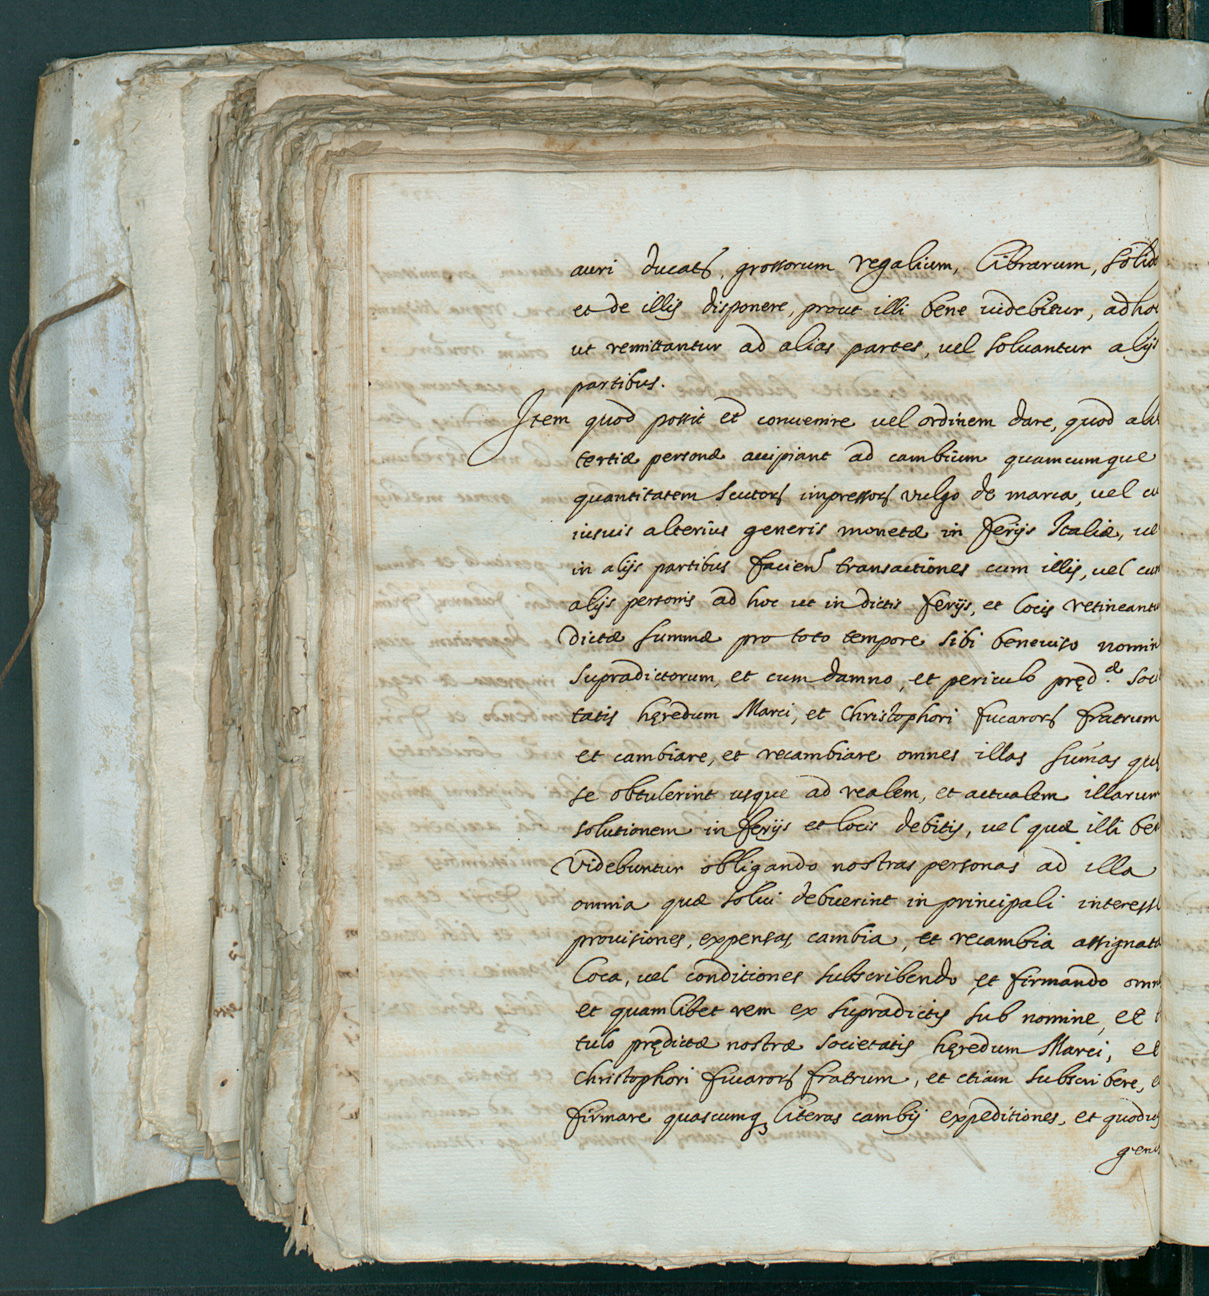 auri ducatȝ, grossorum regalium, librarum, solid
et de illis disponere, prout illi bene uidebitur, ad hoc
ut remittantur ad alias partes, uel soluantur alijs
partibus.
Item quod possit et conuenire uel ordinem dare, quod aliæ
tertiæ personæ accipiant ad cambium quamcumque
quantitatem scutorȝ impressorȝ vulgo de marca, uel cu
iusuis alterius generis monetæ in ferijs Italiæ, uel
in alijs partibus facienđ transactiones cum illis, uel cum
alijs personis ad hoc ut in dictis ferijs, et locis retineantur
dictæ summæ pro toto tempore sibi beneuiso nomin
supradictorum, et cum damno, et periculo pręd.æ soci
tatis hęredum Marci, et Christophori fucarorȝ fratrum
et cambiare, et recambiare omnes illas sum̃as quæ
se obtulerint usque ad realem, et actualem illarum
solutionem in ferijs et locis debitis, uel quæ illi ben
videbuntur obligando nostras personas ad illa
omnia quæ solui debuerint in principali interess
prouisiones, expensas cambia, et recambia assignat
loca, uel conditiones subscribendo et firmando omn
et quamlibet rem ex supradictis sub nomine, et ti
tulo prędictæ nostræ societatis hęredum Marci, et
Christophori fucarorȝ fratrum, et etiam subscribere, e
firmare quascumqȝ literas cambij expeditiones, et quodius
gene